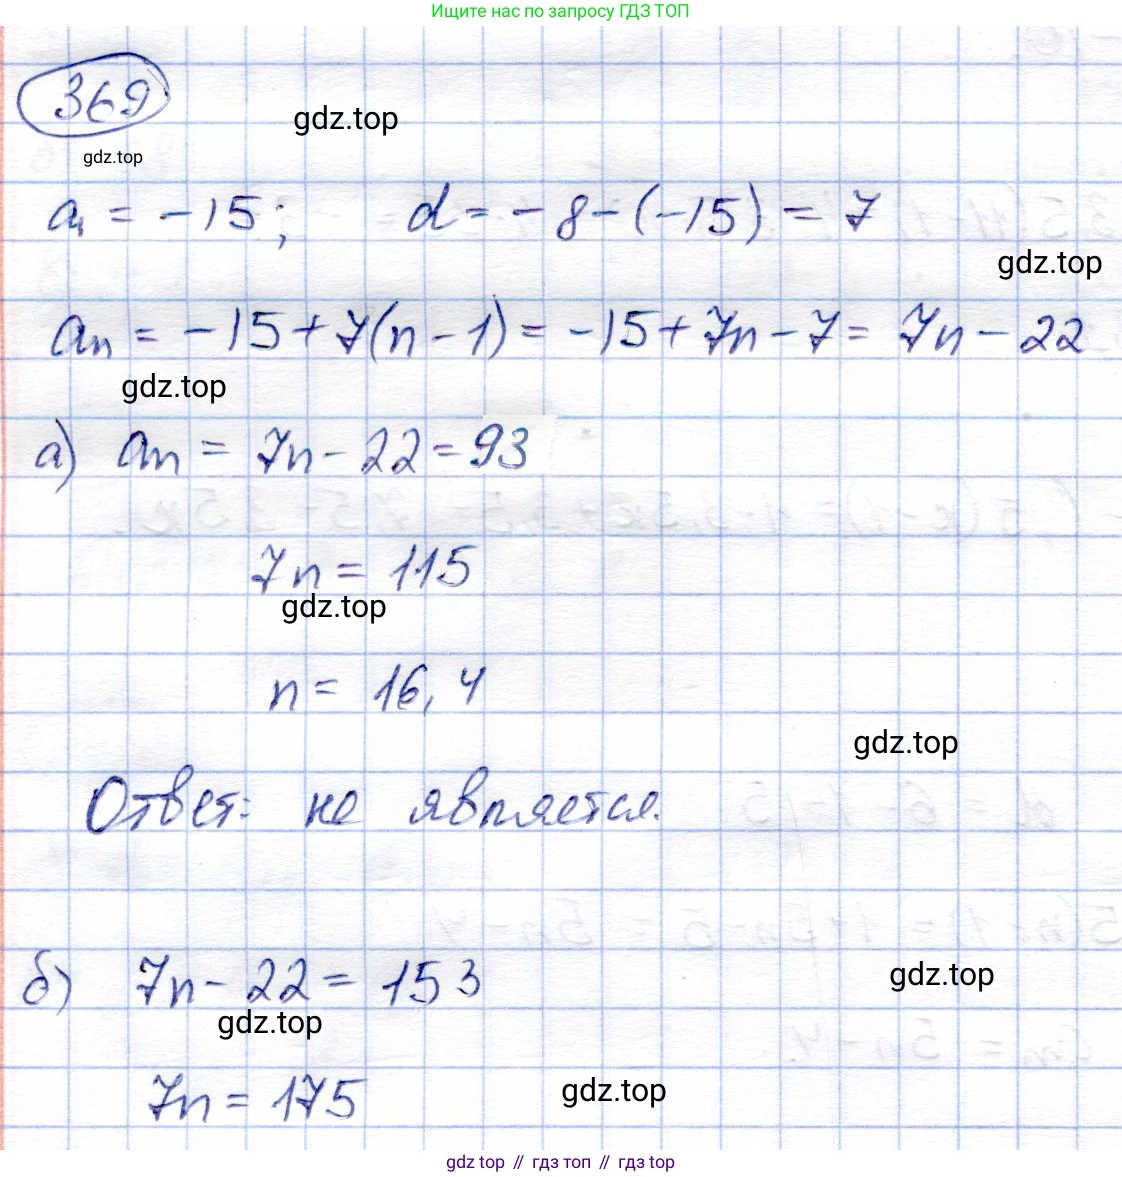 Ищите нас по запросу ГДЗ ТОП
369
gdz.top
gdz.top
a₁ = -15; d = -8-(-15) = 7
gdz.top
aₙ = -15+7(n-1) = -15+7n-7 = 7n-22
gdz.top
а) aₙ = 7n-22 = 93
7n = 115
gdz.top
n = 16,4
gdz.top
Ответ: не является.
б) 7n-22 = 153
gdz.top
gdz.top
7n = 175
gdz.top
gdz top // гдз топ // гдз top